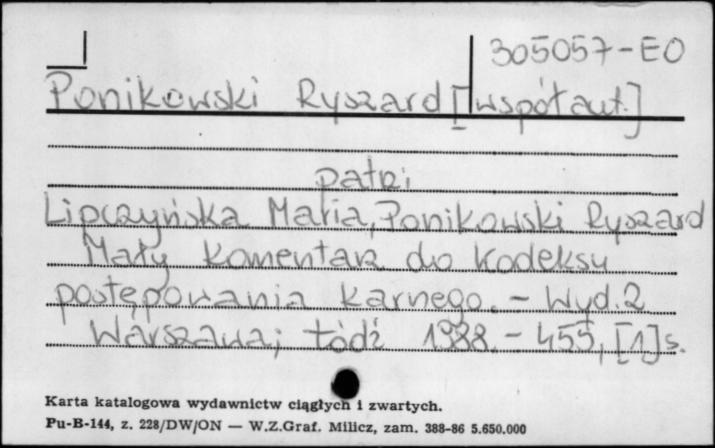 305057-EO
Ponikowski Ryszard [współaut.]
patrz
Lipczyńska Maria, Ponikowski Ryszard
Mały komentarz do kodeksu
postępowania karnego. - Wyd. 2
Warszawa; Łódź 1988. - 455, [1] s.
Karta katalogowa wydawnictw ciągłych i zwartych.
Pu-B-144, z. 228/DW/ON — W.Z.Graf. Milicz, zam. 388-86 5.650.000